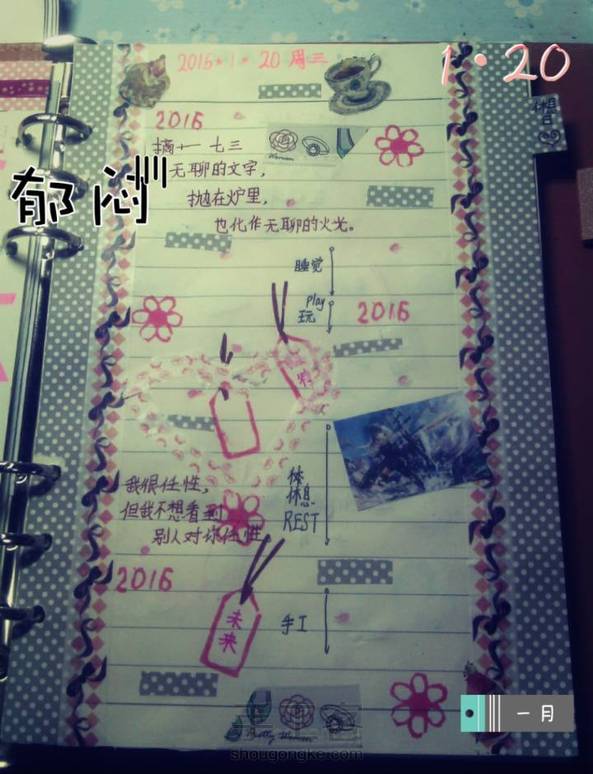 1·20
2016·1·20 周三
2016
摘十一 七三
无聊的文字，
抛在炉里，
也化作无聊的火光。
郁闷
睡觉
play
玩
2016
我很任性，
但我不想看到
别人对你任性。
体
休息
REST
2016
未来
手工
一月
shougongke.com